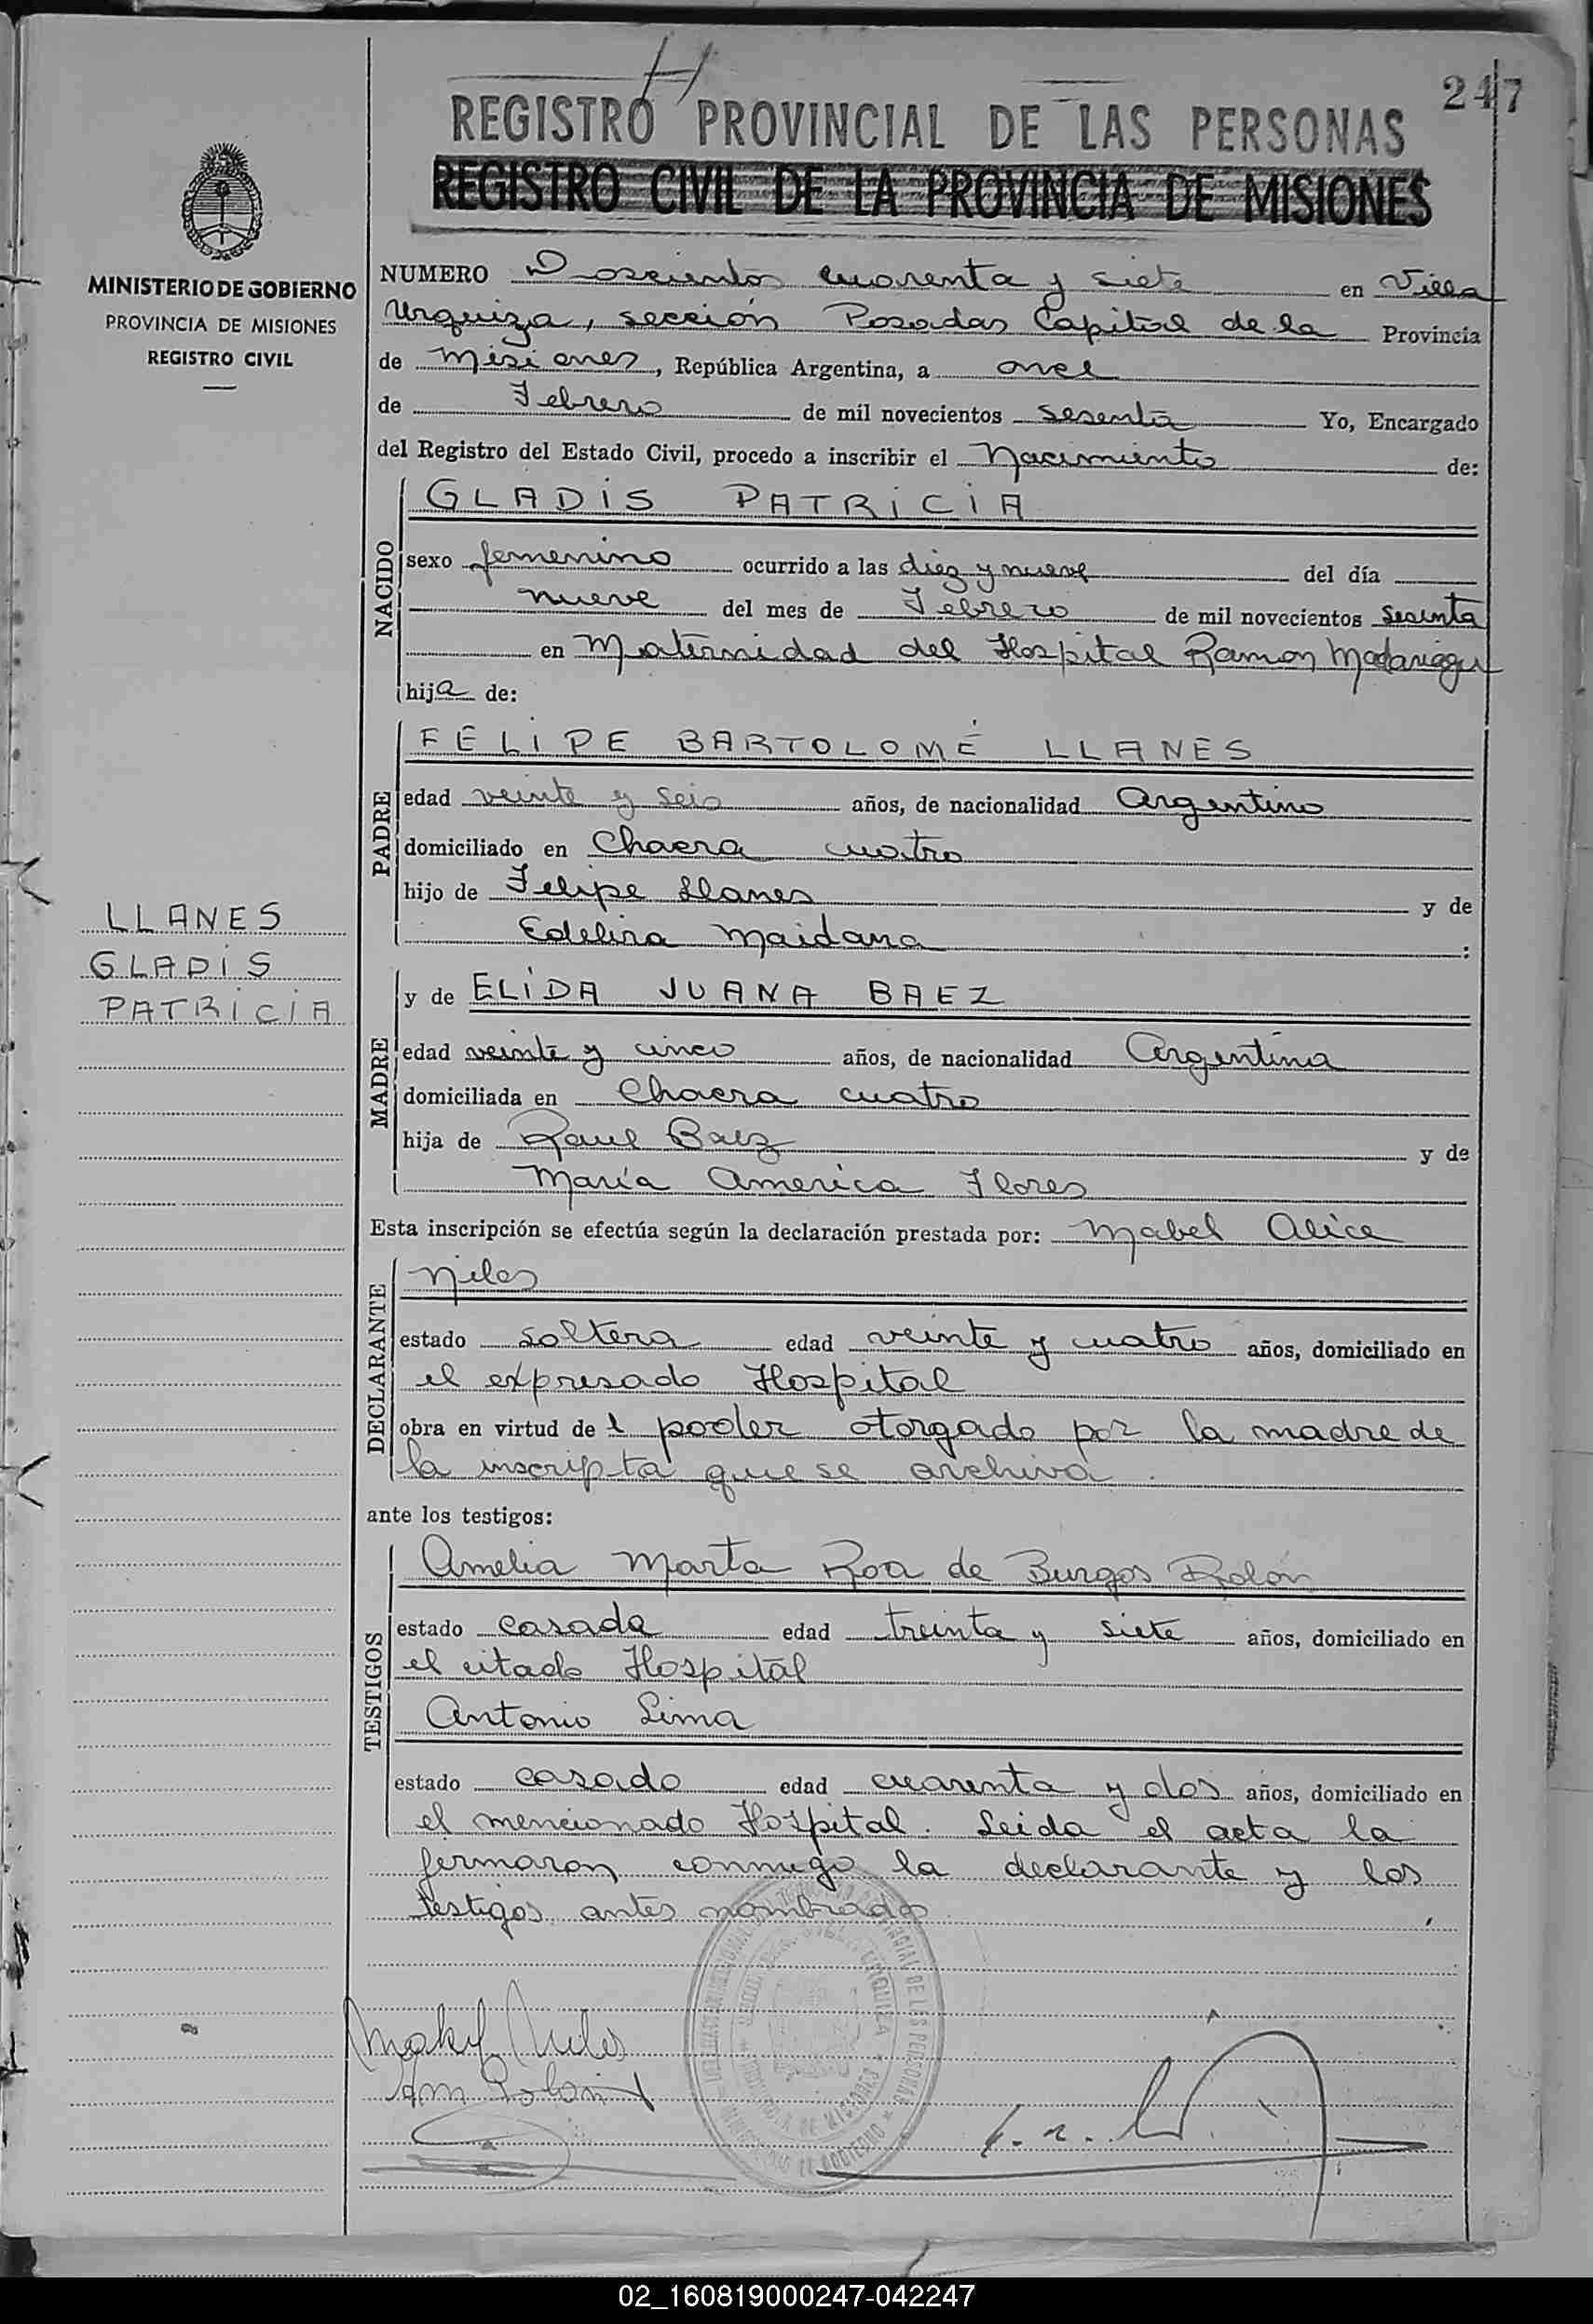 247
REGISTRO PROVINCIAL DE LAS PERSONAS
REGISTRO CIVIL DE LA PROVINCIA DE MISIONES
MINISTERIO DE GOBIERNO
PROVINCIA DE MISIONES
REGISTRO CIVIL
NUMERO Doscientos cuarenta y siete en Villa
Urquiza, sección Posadas Capital de la Provincia
de Misiones, República Argentina, a once
de Febrero de mil novecientos sesenta Yo, Encargado
del Registro del Estado Civil, procedo a inscribir el Nacimiento de:
NACIDO
GLADIS PATRICIA
sexo femenino ocurrido a las diez y nueve del día
nueve del mes de Febrero de mil novecientos sesenta
en Maternidad del Hospital Ramon Madariaga
hija de:
PADRE
FELIPE BARTOLOMÉ LLANES
edad veinte y seis años, de nacionalidad Argentino
domiciliado en Chacra cuatro
hijo de Felipe Llanes y de
Edelira Maidana :
LLANES
GLADIS
PATRICIA
MADRE
y de ELIDA JUANA BAEZ
edad veinte y cinco años, de nacionalidad Argentina
domiciliada en Chacra cuatro
hija de Raul Baez y de
María America Flores
Esta inscripción se efectúa según la declaración prestada por: Mabel Alice
DECLARANTE
Niles
estado soltera edad veinte y cuatro años, domiciliado en
el expresado Hospital
obra en virtud del poder otorgado por la madre de
la inscripta que se archiva.
ante los testigos:
TESTIGOS
Amelia Marta Roa de Burgos Rolón
estado casada edad treinta y siete años, domiciliado en
el citado Hospital
Antonio Lima
estado casado edad cuarenta y dos años, domiciliado en
el mencionado Hospital. Leida el acta la
firmaron conmigo la declarante y los
testigos antes nombrados
02_160819000247-042247